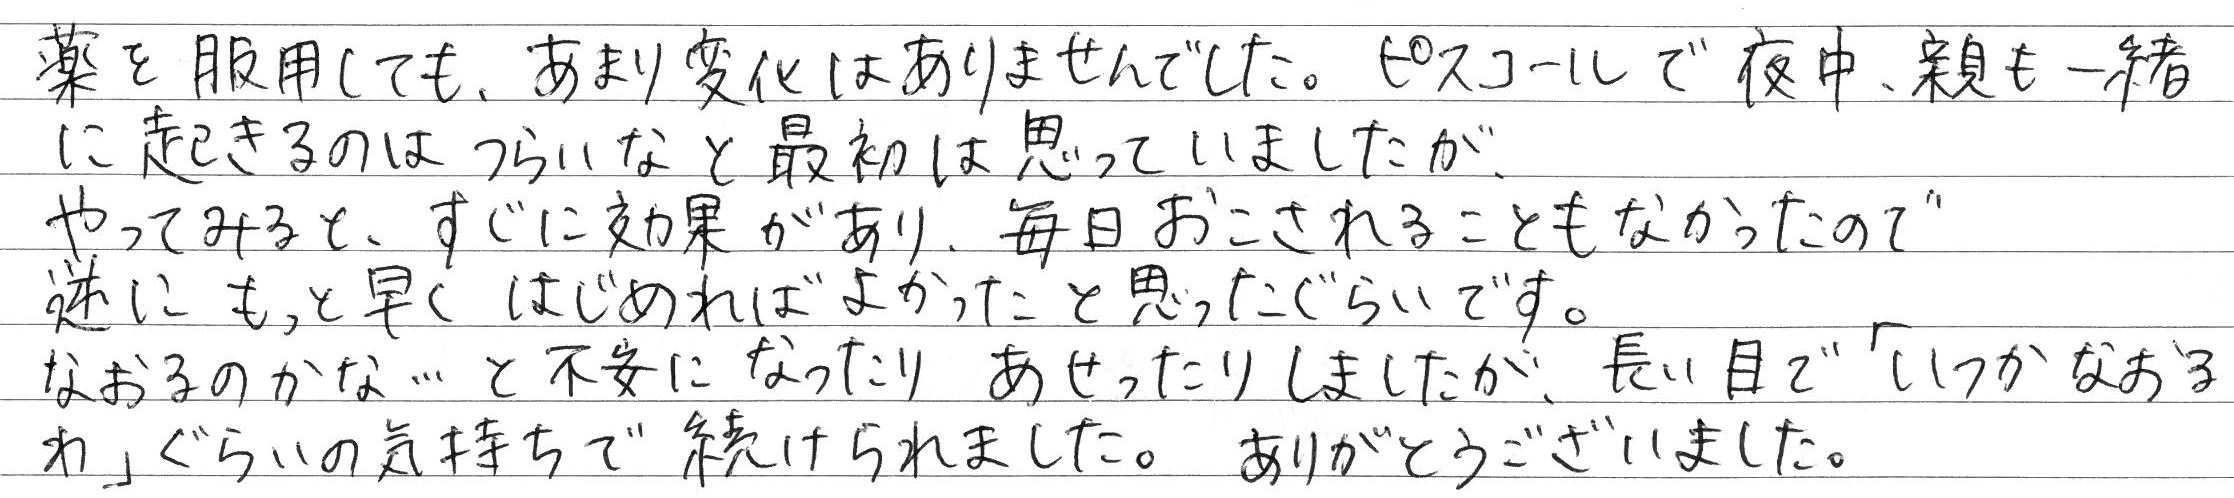 薬を服用しても、あまり変化はありませんでした。ピスコールで夜中、親も一緒
に起きるのはつらいなと最初は思っていましたが、
やってみると、すぐに効果があり、毎日おこされることもなかったので
逆にもっと早くはじめればよかったと思ったぐらいです。
なおるのかな…と不安になったりあせったりしましたが、長い目で「いつかなおる
わ」ぐらいの気持ちで続けられました。ありがとうございました。